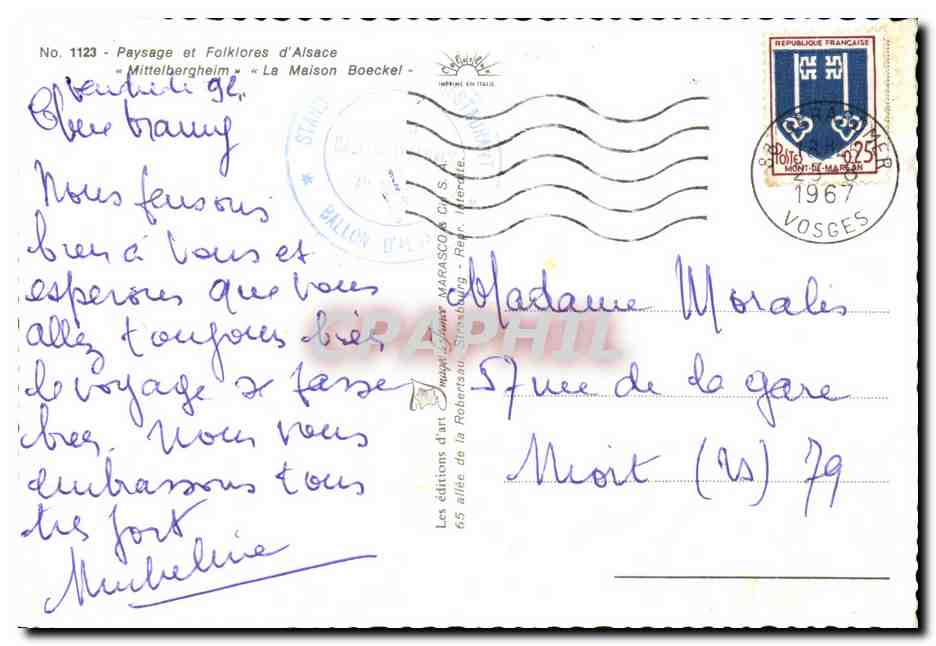 No. 1123 - Paysage et Folklores d'Alsace
« Mittelbergheim » « La Maison Boeckel -
IMPRIMÉ EN ITALIE
Nous pensons
bien à vous et
esperons que vous
allez toujours bien
le voyage se passe
bien. Nous vous
embrassons tous
très fort
Micheline
* STAND
BALLON D'
Les éditions d'art Images de France MARASCO & Cie S. A.
65 allée de la Robertsau Strasbourg - Repr. Interdite.
REPUBLIQUE FRANÇAISE
POSTES 0,25
MONT-DE-MARSAN
88 GERARDMER
1967
VOSGES
Madame Moralès
57 rue de la gare
Niort (DS) 79
CPAPHIL